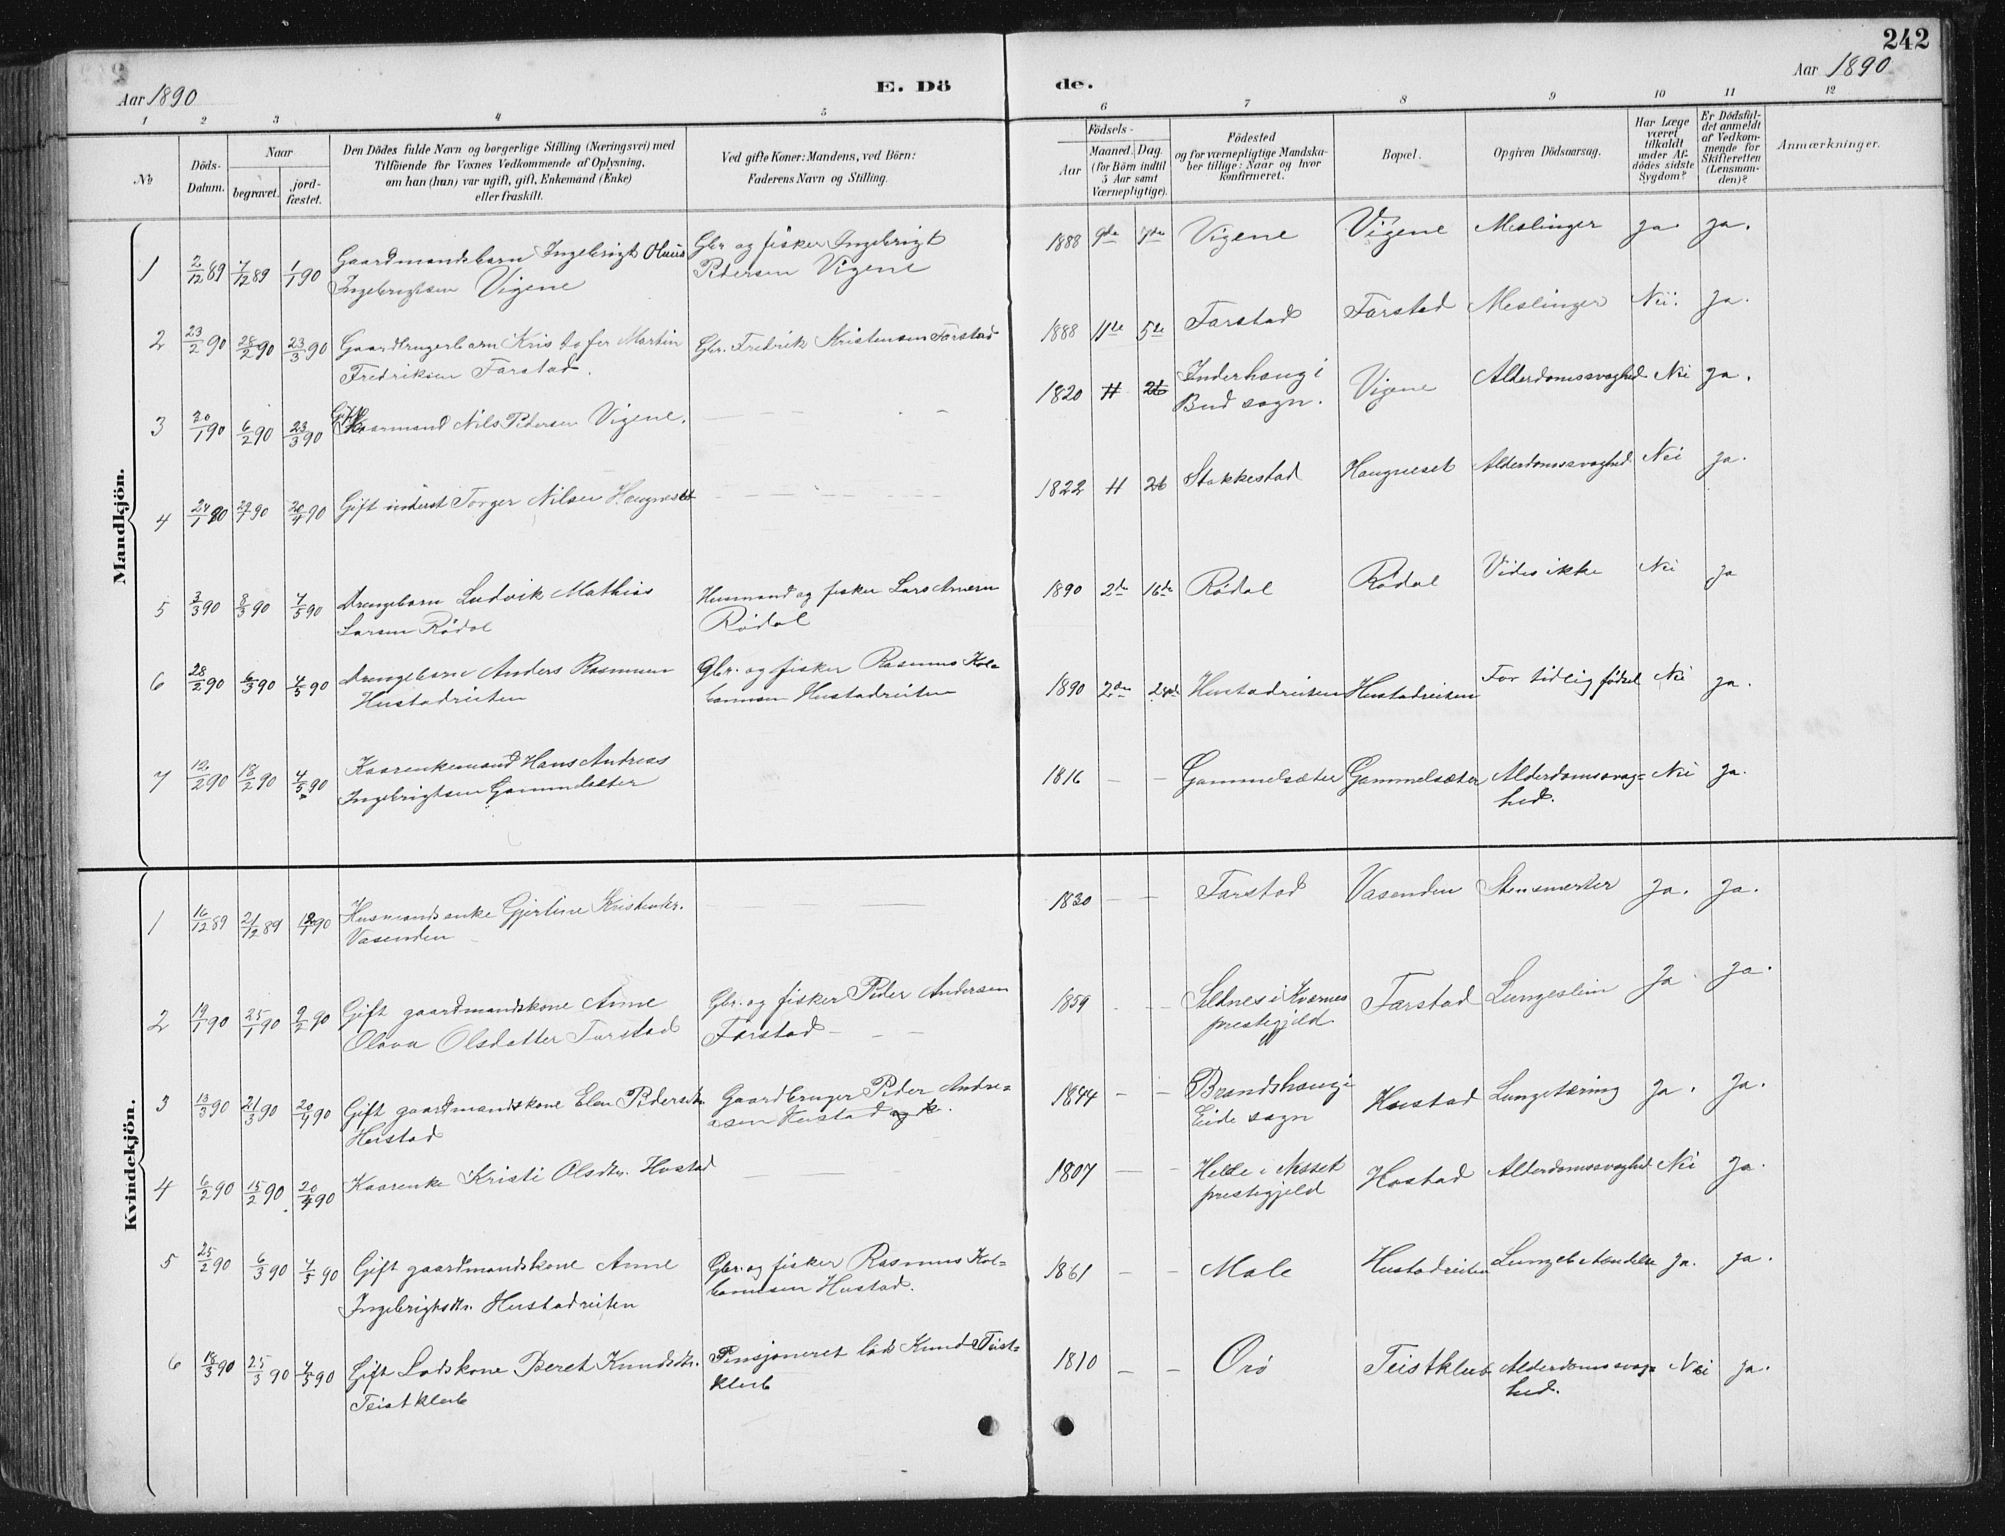 242
Aar 1890
E. Dö
de.
Aar 1890
1 2 3 4 5 6 7 8 9 10 11 12
No
Döds-
Datum.
Naar
begravet.
jord-
fæstet.
Den Dödes fulde Navn og borgerlige Stilling (Næringsvei) med
Tilföiende for Voxnes Vedkommende af Oplysning,
om han (hun) var ugift, gift, Enkemand (Enke)
eller fraskilt.
Ved gifte Koner: Mandens, ved Börn:
Faderens Navn og Stilling.
Födsels-
Aar
Maaned. Dag.
(for Börn indtil
5 Aar samt
Værnepligtige).
Födested
og for værnepligtige Mandska-
ber tillige: Naar og hvor
konfirmeret.
Bopæl.
Opgiven Dödsaarsag.
Har Læge
været
tilkaldt
under Af-
dödes sidste
Sygdom?
Er Dödsfal-
det anmeldt
af Vedkom-
mende for
Skifteretten
(Lensman-
den)?
Anmærkninger.
Mandkjön.
1 2/12 89 7/12 89 1/1 90 Gaardmandsbarn Ingebrigt Olaus Gbr og fisker Ingebrigt 1888 9de Vigene Vigene Meslinger ja ja.
Ingebrigtsen Vigene Pedersen Vigene
2 23/2 90 28/2 90 23/3 90 Gaardbrugerbarn Kristofer Martin Gbr. Fredrik Kristensen Farstad 1888 11te 5te Farstad Farstad Meslinger Nei. ja.
Fredriksen Farstad.
3 30/1 90 6/2 90 23/3 90 Gift Kaarmand Nils Pedersen Vigene. 1820 Inderhaug i Vigene Alderdomssvaghed Nei ja.
Bud sogn.
4 24/1 90 29/1 90 20/4 90 Gift inderst Torger Nilsen Haugneset 1822 26 Stokkestad Haugneset Alderdomssvaghed Nei ja.
5 3/3 90 8/3 90 4/5 90 Drengebarn Ludvik Mathias Husmand og fisker Lars 1890 2de 16de Rødal Rødal Vides ikke Nei ja
Larsen Rødal Rødal
6 28/2 90 6/3 90 4/5 90 Drengebarn Anders Rasmusen Gbr. og fisker Rasmus Kol= 1890 2den Hustadreiten Hustadreiten For tidlig fødsel Nei ja.
Hustadreiten bannsen Hustadreiten
7 12/2 90 18/2 90 4/5 90 Kaarenkemand Hans Andreas 1816 – – Gammelsæter Gammelsæter Alderdomssvag= Nei ja.
Ingebrigtsen Gammelsæter hed.
Kvindekjön.
1 16/12 89 21/12 89 90 Husmandsenke Gjertine Kristensdtr. 1830 – – Farstad Vasenden Stensmerter ja. ja.
Vasenden
2 19/1 90 25/1 90 9/2 90 Gift gaardmandskone Anne Gbr. og fisker Peder Andersen 1859 – – Seldnes i Kvernes Farstad Lungeslim ja ja.
Olava Olsdatter Farstad Farstad – – prestegjeld
3 13/3 90 21/3 90 20/4 90 Gift gaardmandskone Elen Pedersdtr. Gaardbruger Peder Andre= 1844 – – Brandshaug i Hustad Lungetæring ja. ja.
Hustad asen Hustad Eide sogn
4 6/2 90 15/2 90 20/4 90 Kaarenke Kristi Olsdtr. Hustad 1807 – – Helde i Nesset Hustad Alderdomssvaghed Nei ja.
prestegjeld
5 25/2 90 6/3 90 4/5 90 Gift gaardmandskone Anne Gbr. og fisker Rasmus Kol= 1861 – – Male Hustadreiten Lungebetændelse ja. ja.
Ingebrigtsdtr. Hustadreiten bannsen Hustad.
6 18/3 90 25/3 90 4/5 90 Gift Lodskone Beret Knudsdtr. Pensjoneret lods Knud Teist= 1810 – – Orö Teistklub Alderdomssvag= Nei ja.
Teistklub klub hed.